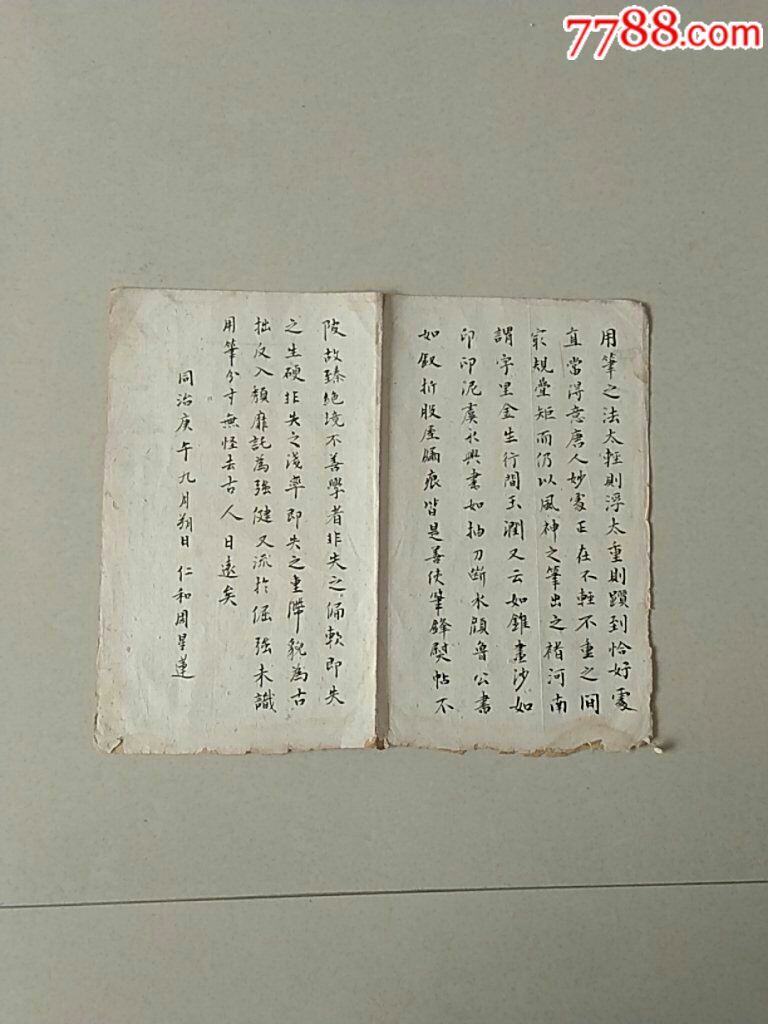 7788.com
用筆之法太輕則浮太重則躓到恰好處
直當得意唐人妙處正在不輕不重之間
間玉潤又云如錐畫沙如
印印泥虞永興書如抽刀斷水顔魯公書
如釵折股屋漏痕皆是善使筆鋒熨帖不
陂故臻絶境不善學者非失之偏軟即失
之生硬非失之淺率即失之重滯貌為古
拙反入頹靡託為強健又流於倔強未識
用筆分寸無怪去古人日遠矣
同治庚午九月朔日仁和周星蓮